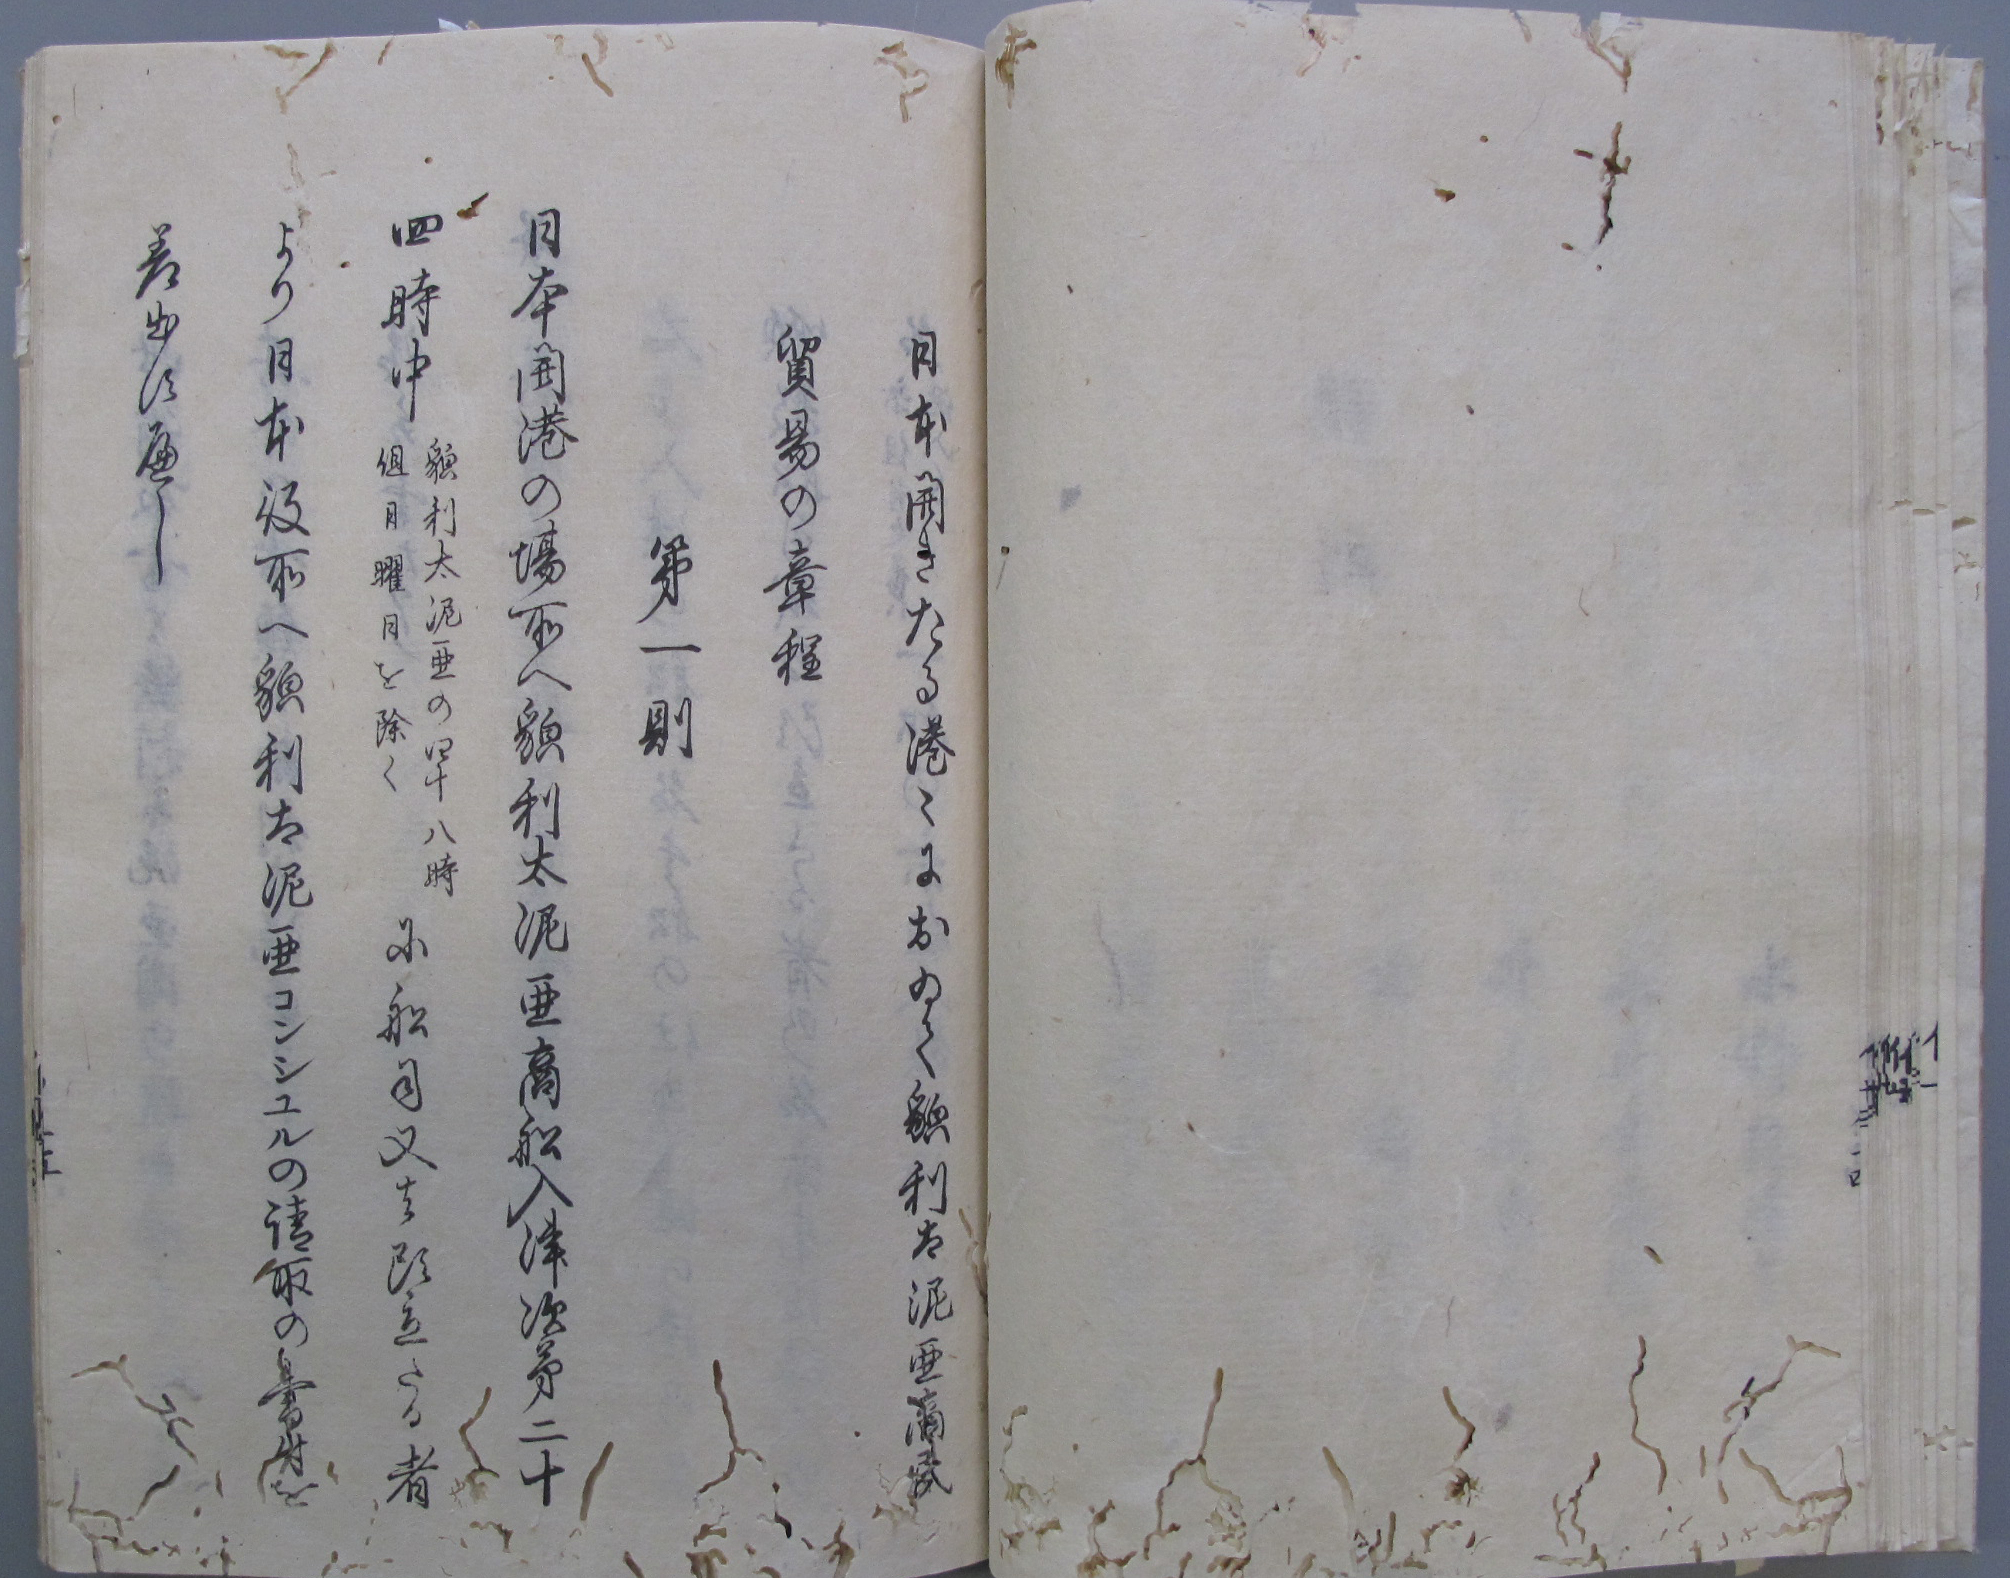 日本開きたる港〻においく貌利太泥亜商民
貿易の章程
第一則
日本開港の場所へ貌利太泥亜商船入津次第二十
四時中
貌利太泥亜の四十八時
但日曜日を除く
に船司又は頭立たる者
より日本役所へ貌利太泥亜コンシユルの請取の書付を
差出す遍し